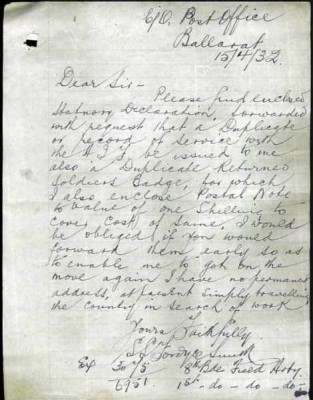 C/O. Post Office
Ballarat
15/4/32.
Dear Sir -
Please find enclosed
Statuory Declaration, forwarded
with request that a Duplicate
or record of Service with
the A.I.F, be issued to me
also a Duplicate Returned
Soldiers Badge, for which
I also enclose Postal Note
to value of one Shelling to
cover cost of same, I would
be obliged if You would
forward them early so as
to enable me to get on the
move again I have no permanent
address, at present simply travelling
the country in search of work
I am
Yours Faithfully
Fordyce Smith
Ex 8th Bde Field Arty.
6951 1st - do - do - do -